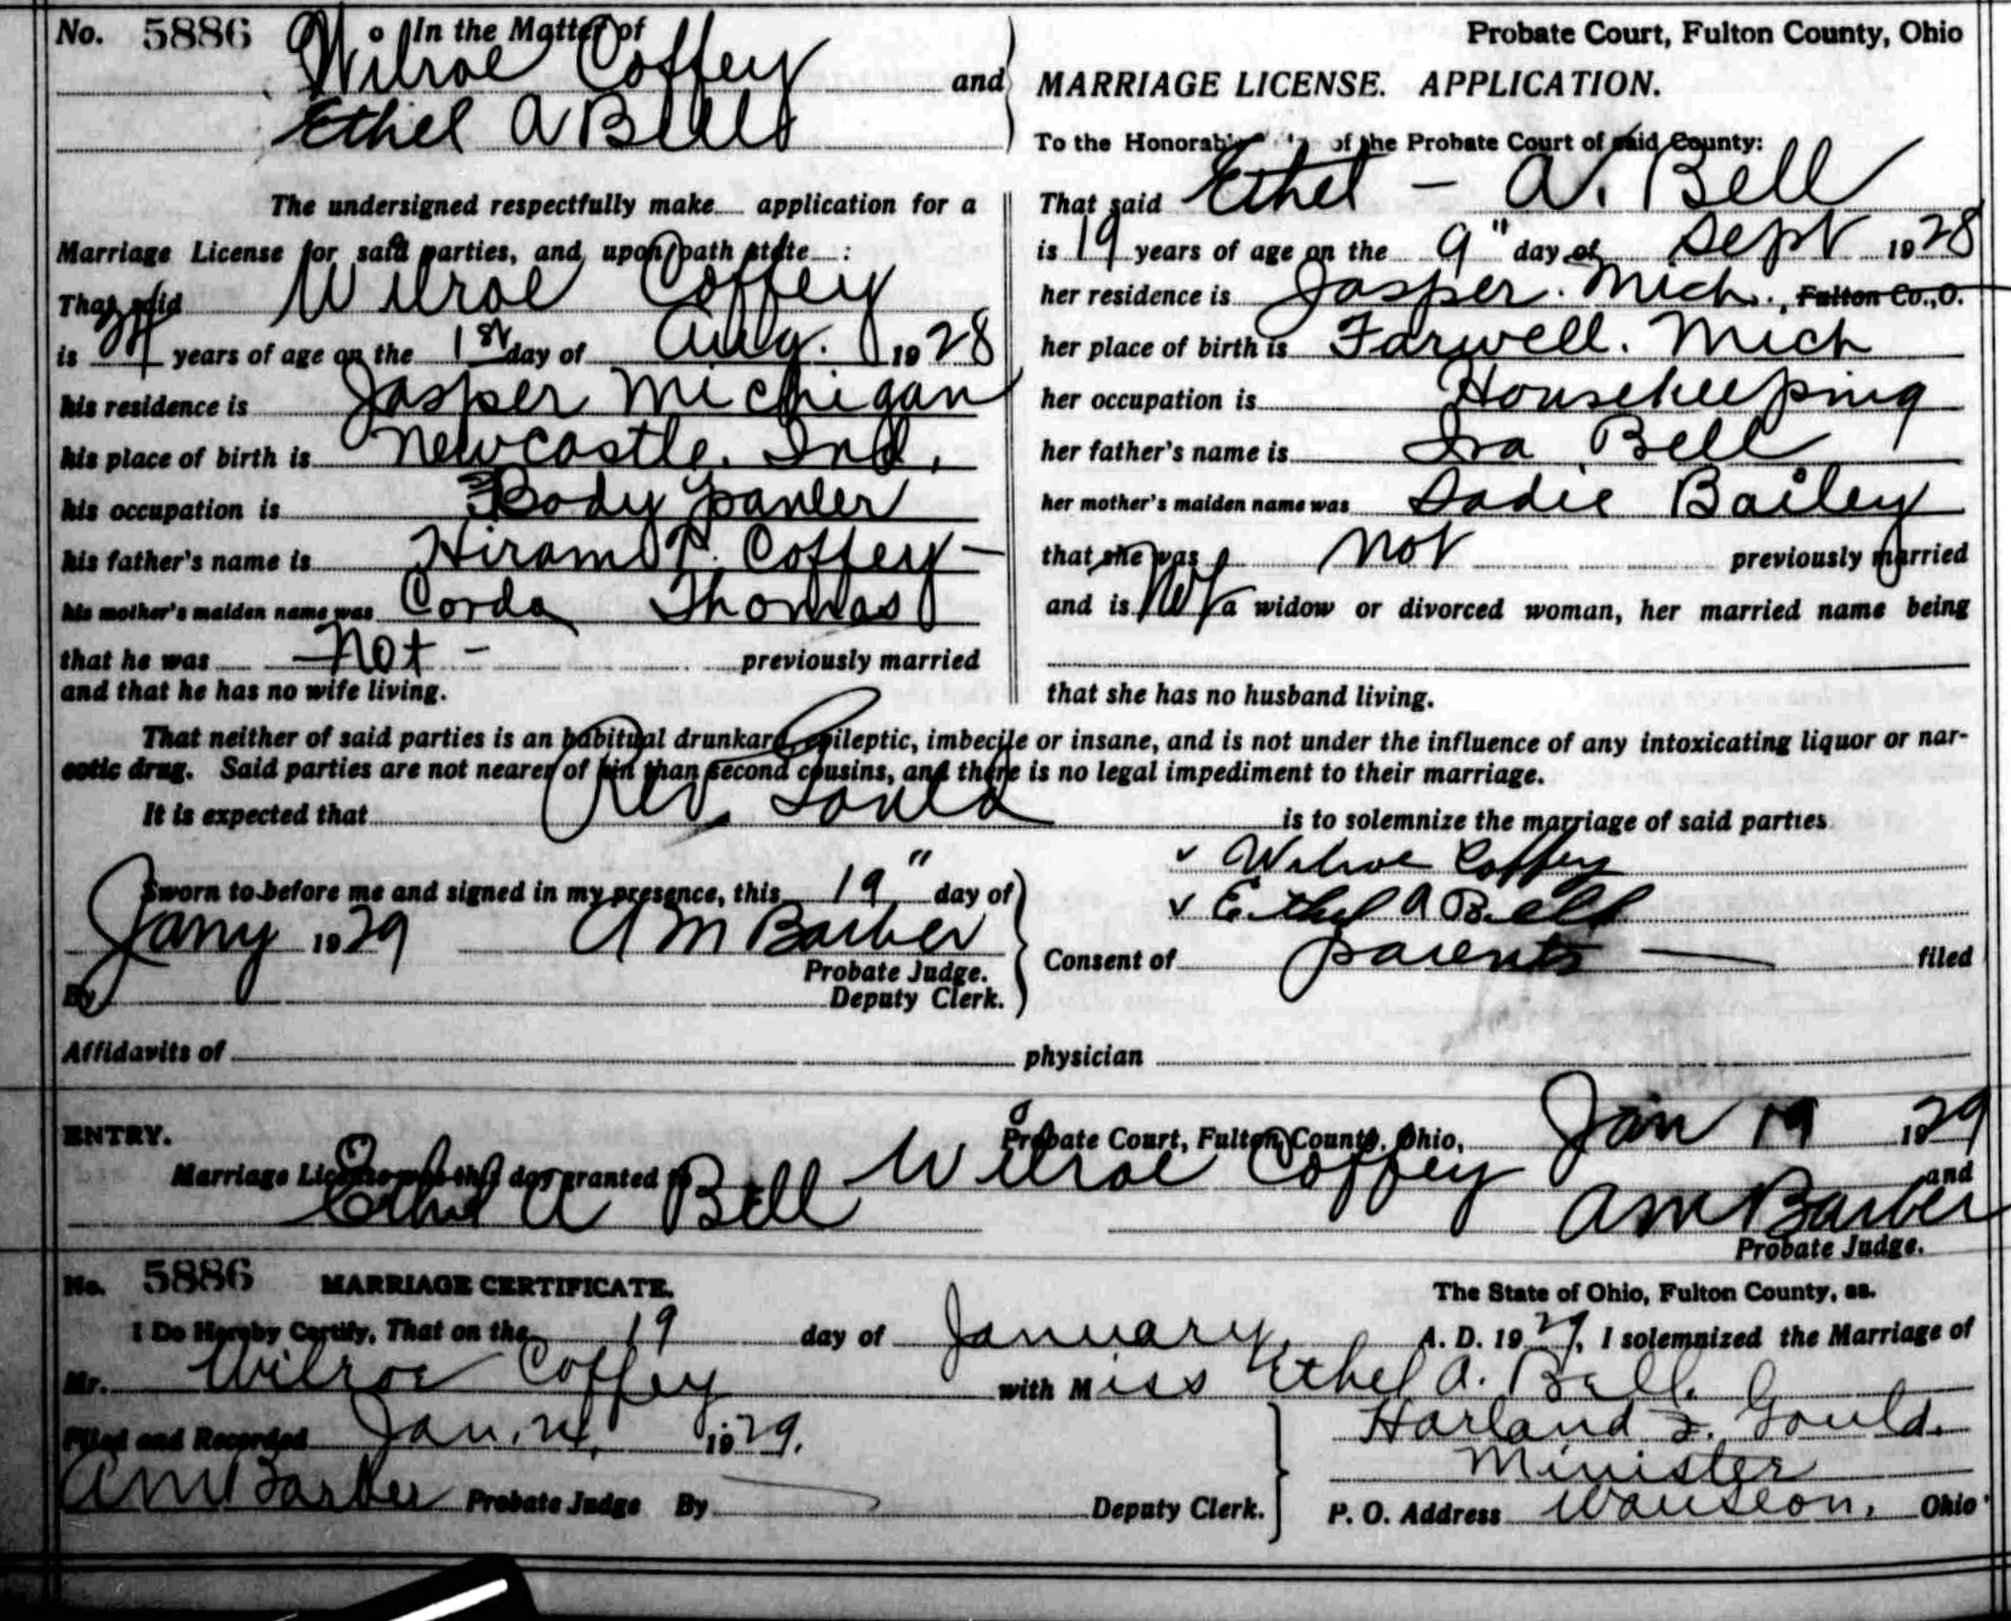 No. 5886 In the Matter of
Wilroe Coffey and
Ethel A Bell
The undersigned respectfully make application for a
Marriage License for said parties, and upon oath state :
That said Wilroe Coffey
is years of age on the 1st day of Aug. 1928
his residence is Jasper Michigan
his place of birth is Newcastle. Ind.
his occupation is Body
his father's name is Hiram P. Coffey
his mother's maiden name was Corda Thomas
that he was Not previously married
and that he has no wife living.
Probate Court, Fulton County, Ohio
MARRIAGE LICENSE. APPLICATION.
To the Honorable of the Probate Court of said County:
That said Ethel - A. Bell
is 19 years of age on the 9" day of Sept 1928
her residence is Jasper. Mich., Fulton Co., O.
her place of birth is Farwell. Mich
her occupation is Housekeeping
her father's name is Ira Bell
her mother's maiden name was Sadie Bailey
that she was not previously married
and is Not a widow or divorced woman, her married name being
that she has no husband living.
That neither of said parties is an habitual drunkard, epileptic, imbecile or insane, and is not under the influence of any intoxicating liquor or nar-
cotic drug. Said parties are not nearer of kin than second cousins, and there is no legal impediment to their marriage.
It is expected that Rev. Gould is to solemnize the marriage of said parties
Sworn to before me and signed in my presence, this 19" day of
Jany 1929 A M Barber
Probate Judge.
By Deputy Clerk.
Wilroe Coffey
Ethel A Bell
Consent of parents filed
Affidavits of physician
ENTRY. Probate Court, Fulton County, Ohio, Jan 19 1929
Marriage License was this day granted to Wilroe Coffey and
Ethel A Bell A M Barber
Probate Judge.
No. 5886 MARRIAGE CERTIFICATE. The State of Ohio, Fulton County, ss.
I Do Hereby Certify, That on the 19 day of January A. D. 1929, I solemnized the Marriage of
Mr. Wilroe Coffey with Miss Ethel A. Bell.
Filed and Recorded Jan. 1929.
A M Barber Probate Judge By Deputy Clerk.
Harland Gould.
Minister
P. O. Address Wauseon, Ohio